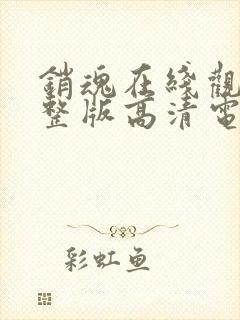 銷魂在綫觀
整版高清電
彩虹鱼